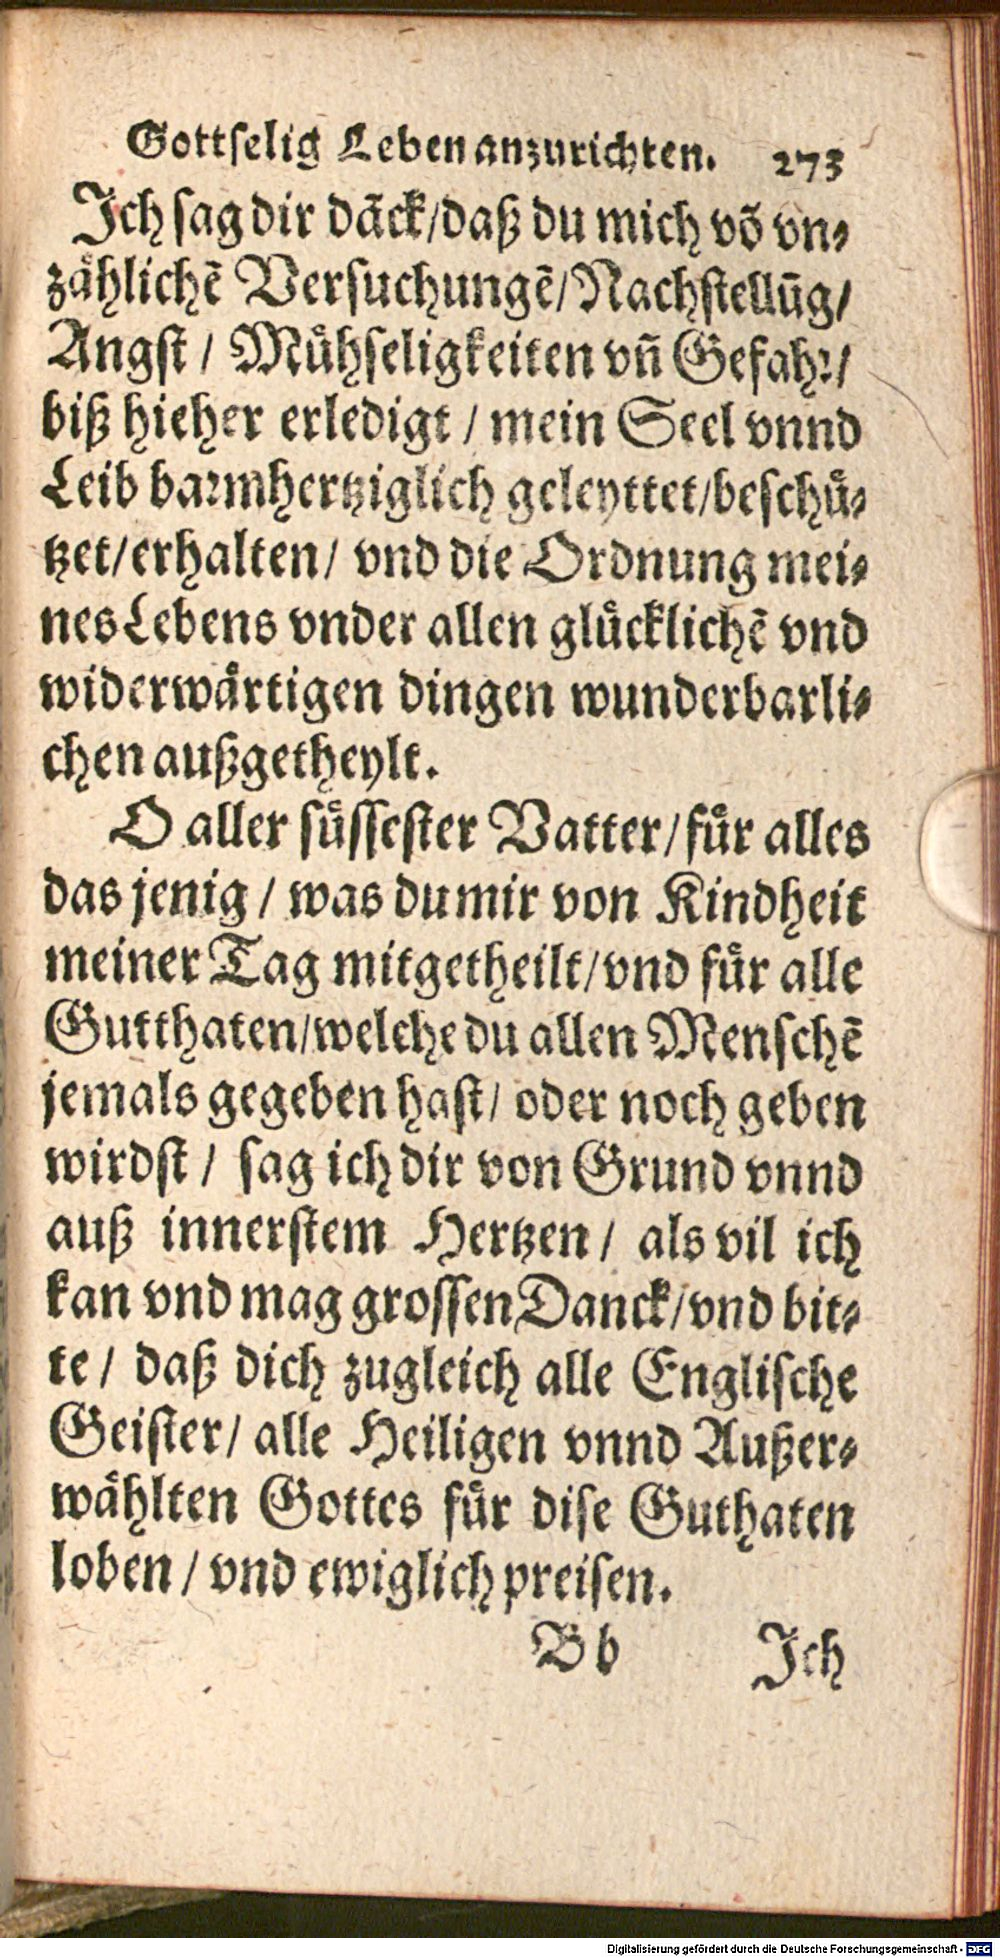 Gottselig Leben anzurichten. 273
Ich sag dir dāck/daß du mich võ vn-
zåhlichē Versuchungē/Nachstellūg/
Angst / Můhseligkeiten vñ Gefahr/
biß hieher erledigt / mein Seel vnnd
Leib barmhertziglich geleyttet/beschů-
tzet/erhalten/ vnd die Ordnung mei-
nes Lebens vnder allen glůcklichē vnd
widerwårtigen dingen wunderbarli-
chen außgetheylt.
O aller sůssester Vatter/fůr alles
das jenig / was du mir von Kindheit
meiner Tag mitgetheilt/vnd fůr alle
Gutthaten/welche du allen Menschē
jemals gegeben hast/ oder noch geben
wirdst / sag ich dir von Grund vnnd
auß innerstem Hertzen / als vil ich
kan vnd mag grossen Danck/vnd bit-
te / daß dich zugleich alle Englische
Geister/ alle Heiligen vnnd Außer-
wåhlten Gottes fůr dise Guthaten
loben / vnd ewiglich preisen.
Bb Ich
Digitalisierung gefördert durch die Deutsche Forschungsgemeinschaft - DFG